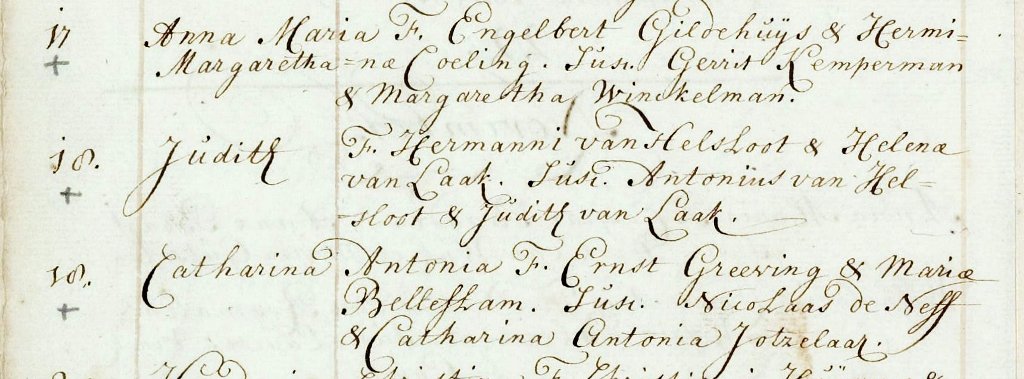 17 Anna Maria F. Engelbert Gildehuÿs & Hermi=
+ Margaretha =næ Coeling. Susc. Gerrit Kemperman
& Margaretha Winckelman.
18. Judith F. Hermanni van Helsloot & Helenæ
+ van Laak. Susc. Antonius van Hel=
=sloot & Judith van Laak.
18. Catharina Antonia F. Ernst Greeving & Mariæ
+ Belleslam. Susc. Nicolaas de Neff
& Catharina Antonia Jotzelaar.